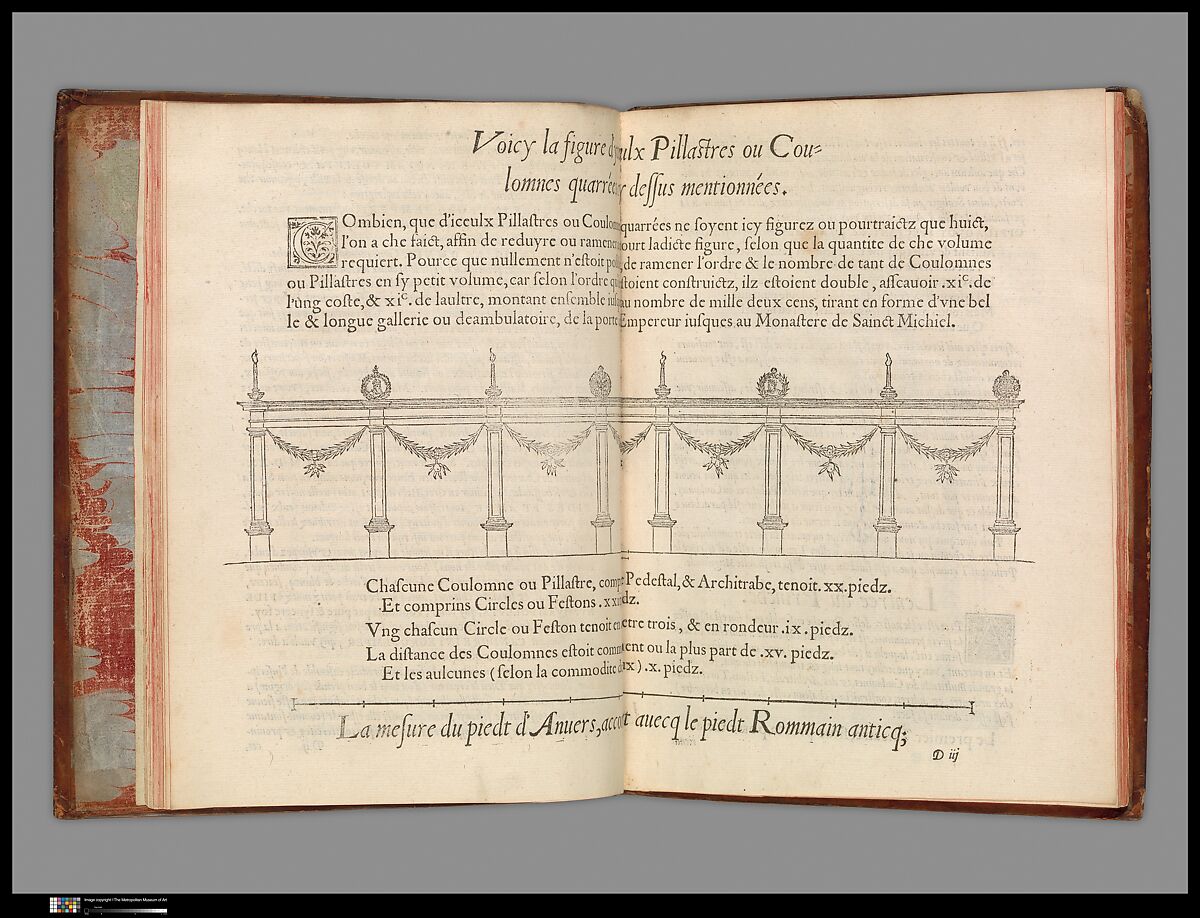 Voicy la figure d ulx Pillaſtres ou Cou=
lomnes quarrée deſſus mentionnées.
COmbien, que d'iceulx Pillaſtres ou Coulom quarrées ne ſoyent icy figurez ou pourtraictz que huict,
l'on a che faict, affin de reduyre ou ramener ourt ladicte figure, ſelon que la quantite de che volume
requiert. Pource que nullement n'eſtoit po de ramener l'ordre & le nombre de tant de Coulomnes
ou Pillaſtres en ſy petit volume, car ſelon l'ordre q ſtoient conſtruictz, ilz eſtoient double, aſſcauoir .xic. de
l'ùng coſte, & xic. de laultre, montant enſemble iuſ au nombre de mille deux cens, tirant en forme d'vne bel
le & longue gallerie ou deambulatoire, de la porte Empereur iuſques au Monaſtere de Sainct Michiel.
Chaſcune Coulomne ou Pillaſtre, comp Pedeſtal, & Architrabe, tenoit. xx. piedz.
Et comprins Circles ou Feſtons . xxi dz.
Vng chaſcun Circle ou Feſton tenoit en etre trois, & en rondeur .ix. piedz.
La diſtance des Coulomnes eſtoit comm ent ou la plus part de .xv. piedz.
Et les aulcunes (ſelon la commodite d ix) .x. piedz.
La meſure du piedt d'Anuers, acco t auecq le piedt Rommain anticq;
D iij
Image copyright | The Metropolitan Museum of Art